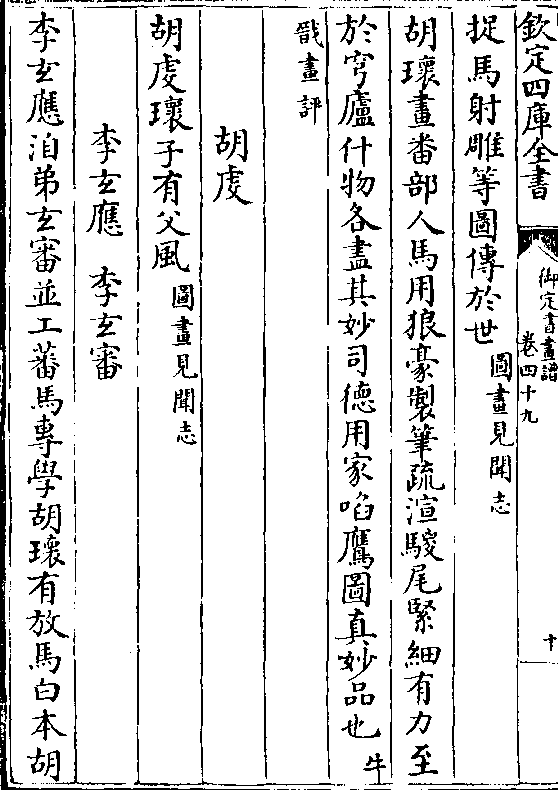 欽定四庫全書
御定書畫譜
卷四十九
十
捉馬射雕等圖傳於世圖畫見聞志
胡瓌畫畨部人馬用狼毫製筆疏渲騣尾緊細有力至
於穹廬什物各盡其妙司德用家㗖鷹圖真妙品也牛
戩畫評
胡虔
胡虔瓌子有父風圖畫見聞志
李玄應　李玄審
李玄應洎弟玄審並工蕃馬專學胡瓌有放馬白本胡